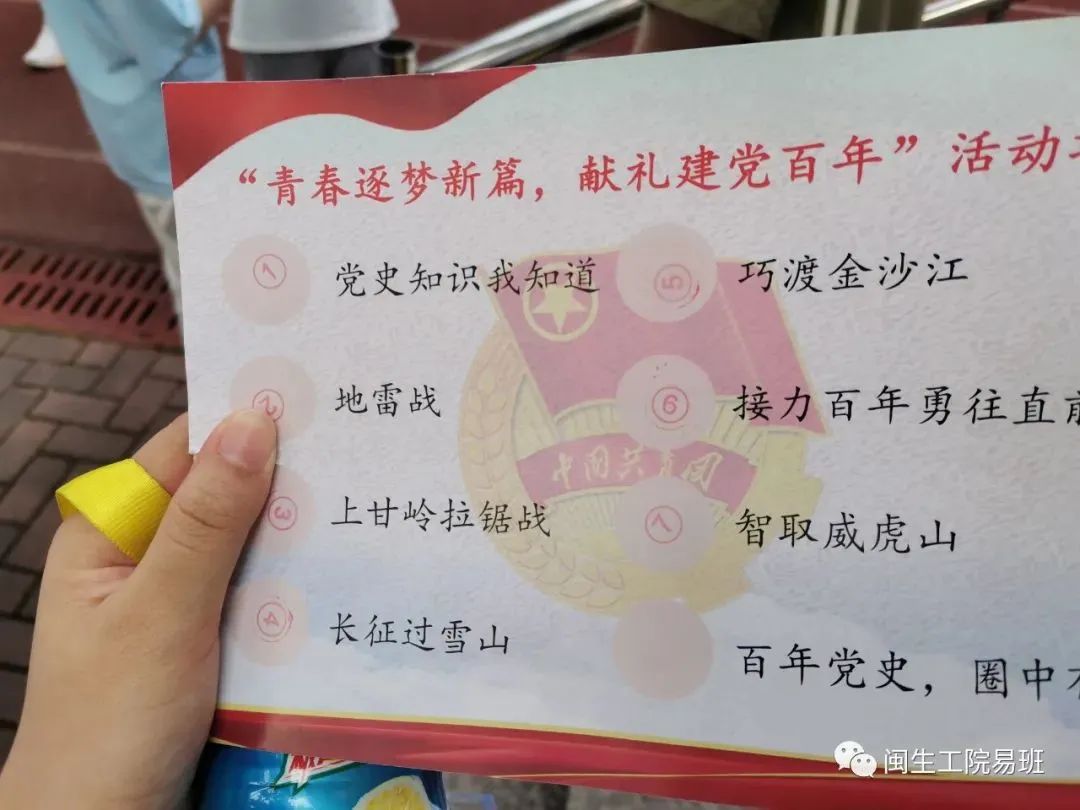 “青春逐梦新篇，献礼建党百年”活动
1 党史知识我知道
2 地雷战
3 上甘岭拉锯战
4 长征过雪山
5 巧渡金沙江
6 接力百年勇往直前
7 智取威虎山
百年党史，圈中
中国共青团
闽生工院易班